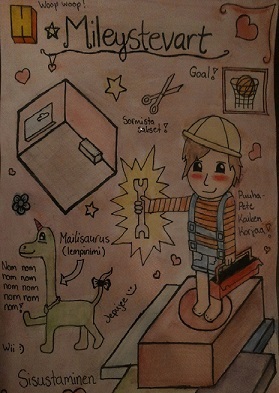 Woop woop!
H
Mileystevart
Goal!
Sormista
Puuha-
Pete
Mailisaurus
(lempinimi)
Nom nom
nom nom
nom nom
nom nom
nom!
Jepjee :)
Wii :)
Sisustaminen